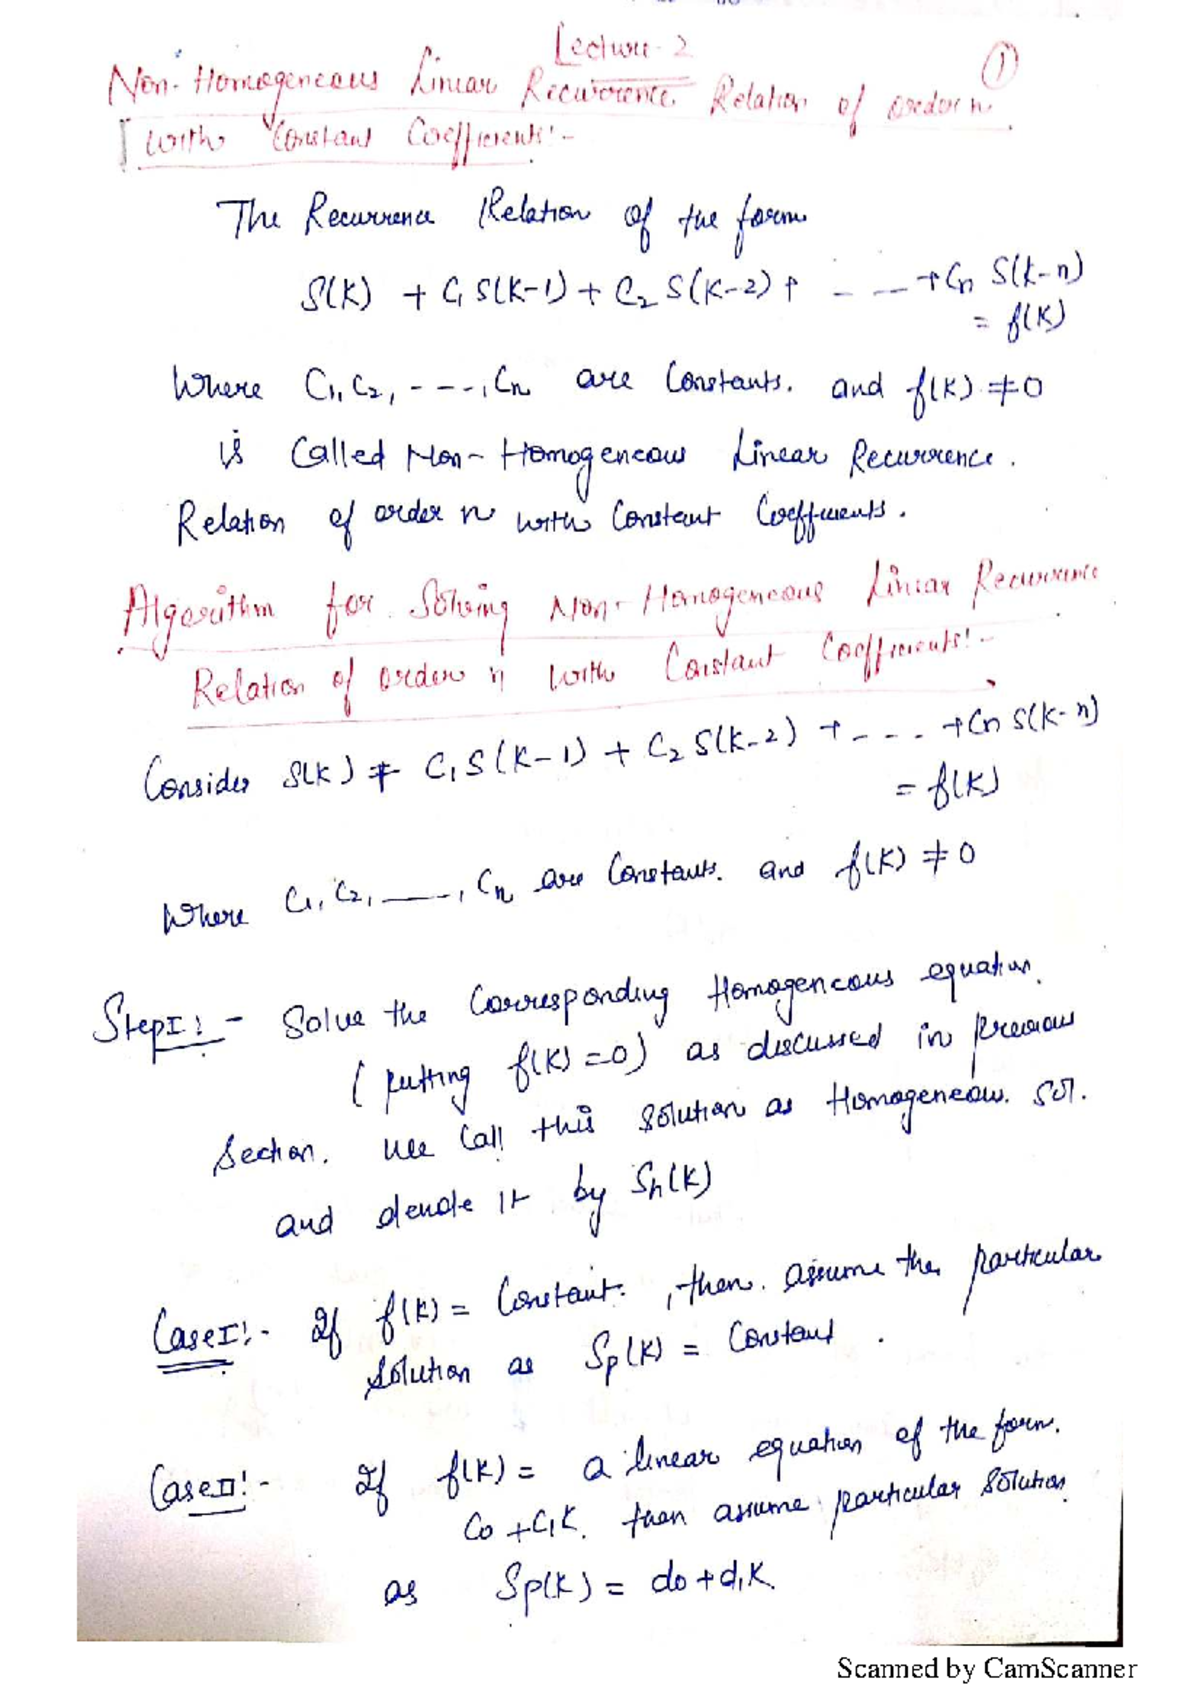 Lecture-2
①
Non-Homogeneous Linear Recurrence Relation of order n
with Constant Coefficients:-
The Recurrence Relation of the form
S(K) + C₁ S(K-1) + C₂ S(K-2) + - - - - + Cn S(K-n)
= f(K)
Where C₁, C₂, ----, Cn are Constants. and f(K) ≠ 0
is Called Non-Homogeneous Linear Recurrence.
Relation of order n with Constant Coefficients.
Algorithm for Solving Non-Homogeneous Linear Recurrence
Relation of order n with Constant Coefficients:-
Consider S(K) + C₁S(K-1) + C₂ S(K-2) + - - - - + Cn S(K-n)
= f(K)
Where C₁, C₂, ——, Cn are Constants. and f(K) ≠ 0
Step I:- Solve the Corresponding Homogeneous equation.
( putting f(K) = 0) as discussed in previous
Section. We Call this solution as Homogeneous. Sol.
and denote it by Sh(K)
Case I:- If f(K) = Constant. , then. assume the particular
Solution as Sp(K) = Constant .
Case II:- If f(K) = a linear equation of the form.
C₀ + C₁K. then assume particular solution
as Sp(K) = d₀ + d₁K.
Scanned by CamScanner